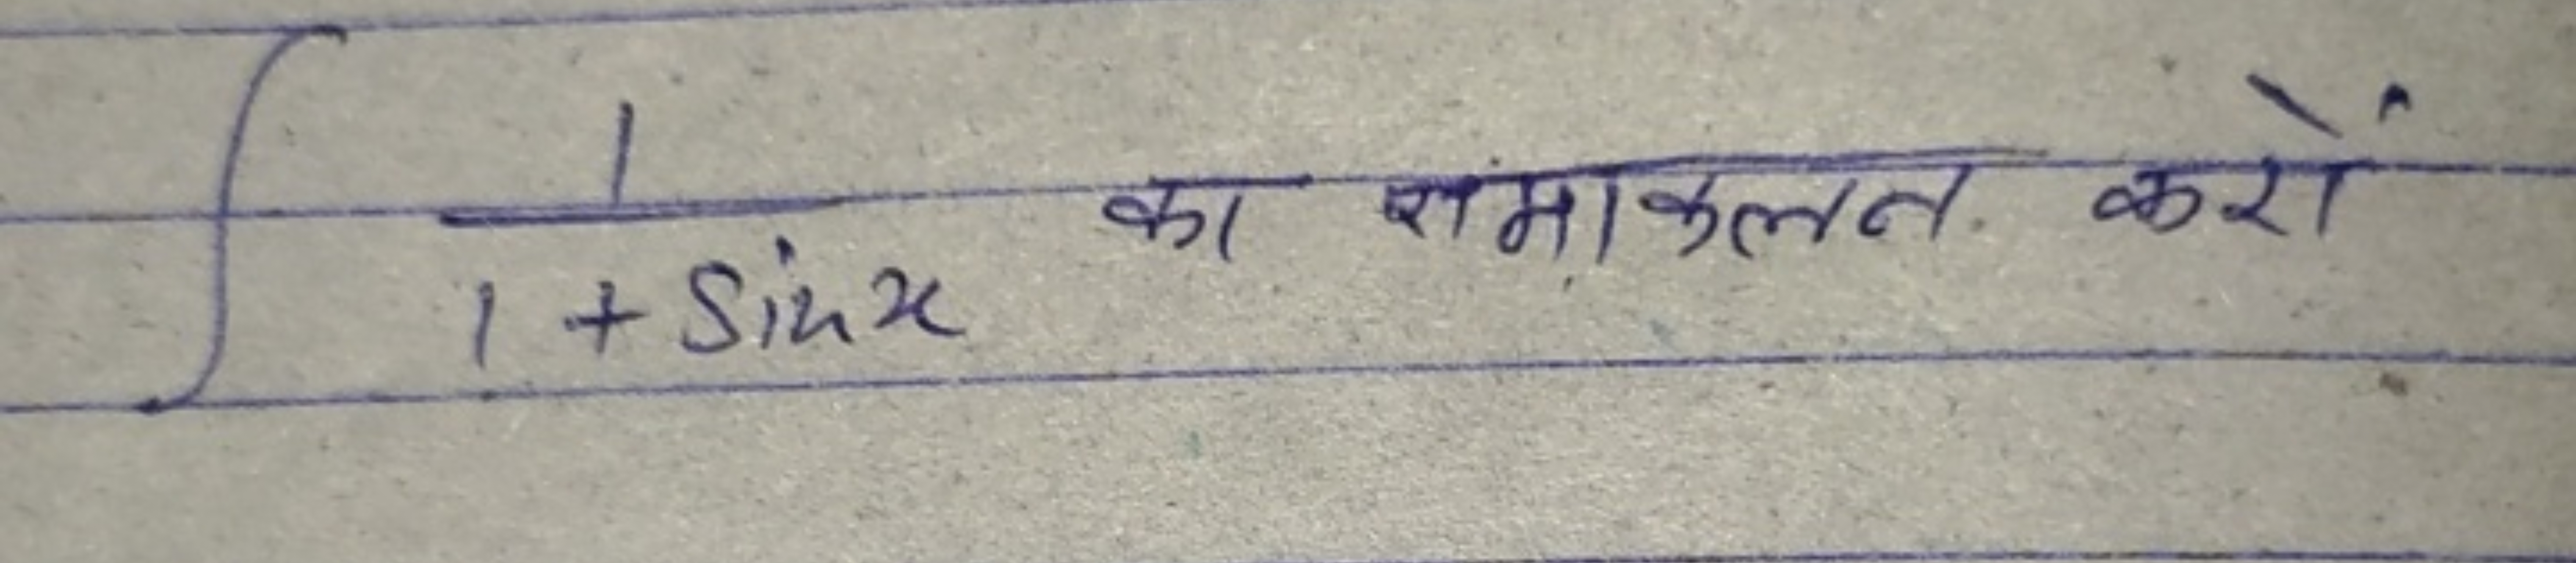 ∫ 1/(1 + Sinx) का समाकलन करों